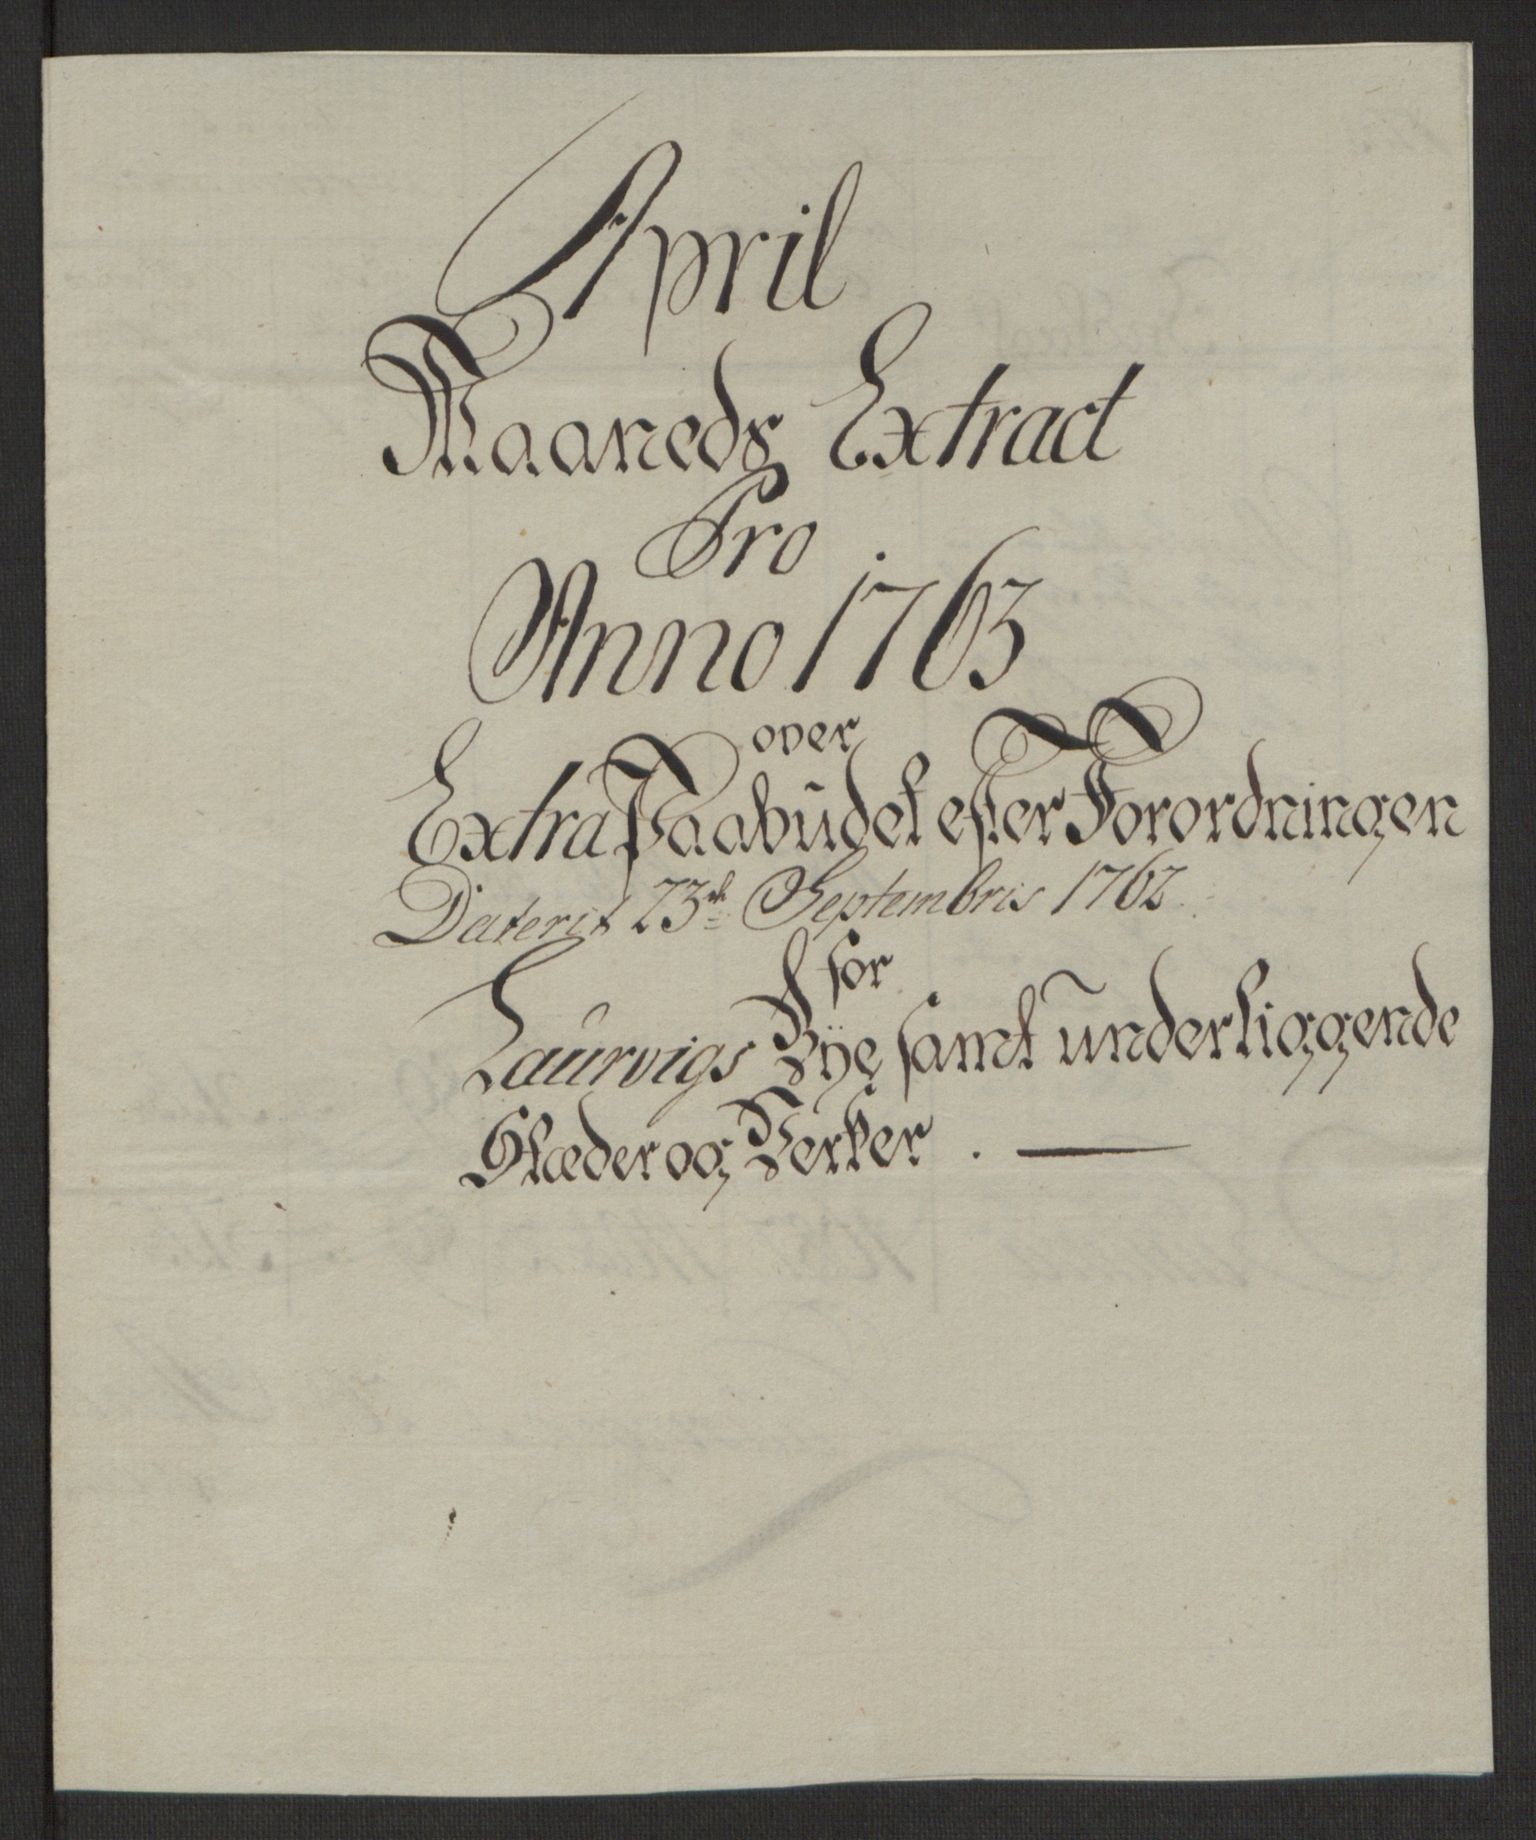 April
Maaneds Extract
Pro
Anno 1763
over
Extra Paabüdet efter Forordningen
Daterit 23de Septembris 1762
for
Laürvigs Bÿe samt ünderliggende
Stæder og Verker. —